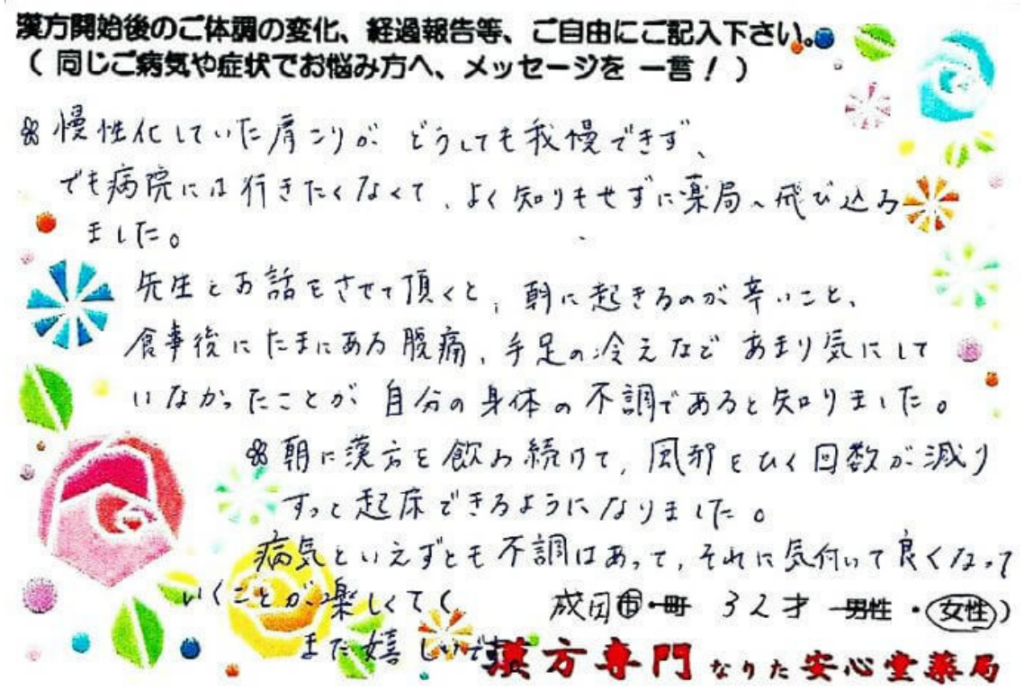 漢方開始後のご体調の変化、経過報告等、ご自由にご記入下さい。
( 同じご病気や症状でお悩み方へ、メッセージを 一言！ )
慢性化していた肩こりが どうしても我慢できず、
でも病院には行きたくなくて、よく知りもせずに薬局へ飛び込み
ました。
先生とお話をさせて頂くと、朝に起きるのが辛いこと、
食事後にたまにある腹痛、手足の冷えなど あまり気にして
いなかったことが 自分の身体の不調であると知りました。
朝に漢方を飲み続けて、風邪をひく回数が減り
すっと起床できるようになりました。
病気といえずとも不調はあって、それに気付いて良くなって
いくことが楽しくて
また嬉しいです
成田市・町 32才 男性・女性)
漢方専門 なりた 安心堂薬局